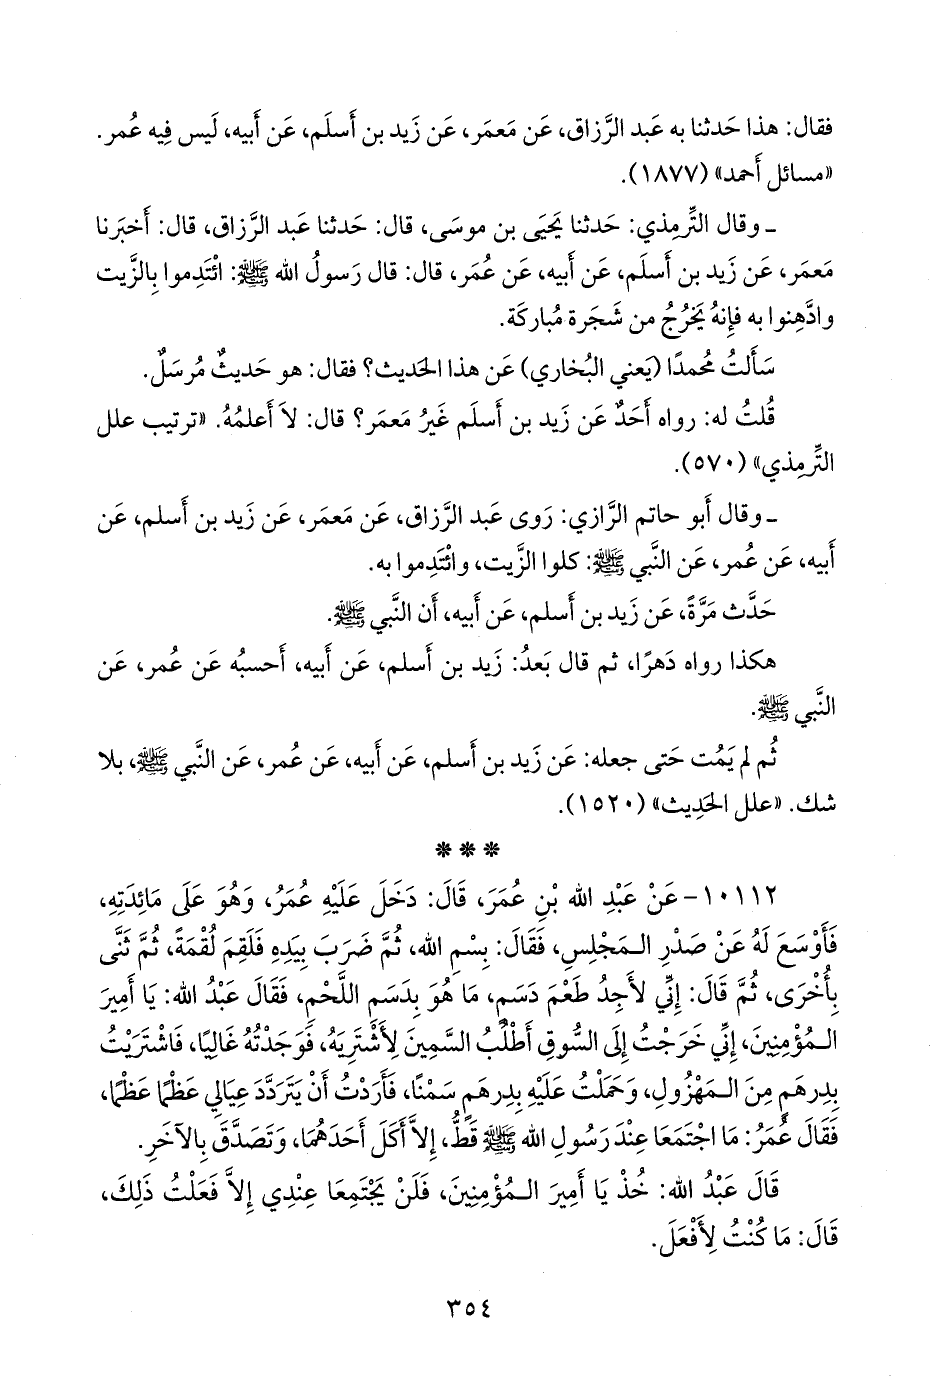 فقال: هذا حَدثنا به عَبد الرَّزاق، عَن مَعمَر، عَن زَيد بن أَسلَم، عَن أَبيه، لَيس فِيه عُمر.
«مسائل أَحمد» (١٨٧٧).
ـ وقال التِّرمِذي: حَدثنا يَحيَى بن موسَى، قال: حَدثنا عَبد الرَّزاق، قال: أَخبَرنا
مَعمَر، عَن زَيد بن أَسلَم، عَن أَبيه، عَن عُمَر، قال: قال رَسولُ الله ﷺ: ائْتَدِموا بِالزَّيت
وادَّهِنوا به فإِنهُ يَخرُجُ من شَجَرة مُبارَكة.
سَأَلتُ مُحمدًا (يَعني البُخاري) عَن هذا الحَديث؟ فقال: هو حَديثٌ مُرسَلٌ.
قُلتُ له: رواه أَحَدٌ عَن زَيد بن أَسلَم غَيرُ مَعمَر؟ قال: لاَ أَعلمُهُ. «ترتيب علل
التِّرمِذي» (٥٧٠).
ـ وقال أَبو حاتم الرَّازي: رَوى عَبد الرَّزاق، عَن مَعمَر، عَن زَيد بن أَسلم، عَن
أَبيه، عَن عُمر، عَن النَّبي ﷺ: كلوا الزَّيت، وائْتَدِموا به.
حَدَّث مَرَّةً، عَن زَيد بن أَسلم، عَن أَبيه، أَن النَّبي ﷺ.
هكذا رواه دَهرًا، ثم قال بَعدُ: زَيد بن أَسلم، عَن أَبيه، أَحسبُه عَن عُمر، عَن
النَّبي ﷺ.
ثُم لم يَمُت حَتى جعله: عَن زَيد بن أَسلم، عَن أَبيه، عَن عُمر، عَن النَّبي ﷺ، بلا
شك. «علل الحَدِيث» (١٥٢٠).
* * *
١٠١١٢- عَنْ عَبْدِ الله بْنِ عُمَرَ، قَالَ: دَخَلَ عَلَيْهِ عُمَرُ، وَهُوَ عَلَى مَائِدَتِهِ،
فَأَوْسَعَ لَهُ عَنْ صَدْرِ الـمَجْلِسِ، فَقَالَ: بِسْمِ الله، ثُمَّ ضَرَبَ بِيَدِهِ فَلَقِمَ لُقْمَةً، ثُمَّ ثَنَّى
بِأُخْرَى، ثُمَّ قَالَ: إِنِّي لأَجِدُ طَعْمَ دَسَمٍ، مَا هُوَ بِدَسَمِ اللَّحْمِ، فَقَالَ عَبْدُ الله: يَا أَمِيرَ
الـمُؤْمِنِينَ، إِنِّي خَرَجْتُ إِلَى السُّوقِ أَطْلُبُ السَّمِينَ لِأَشْتَرِيَهُ، فَوَجَدْتُهُ غَالِيًا، فَاشْتَرَيْتُ
بِدِرهَمٍ مِنَ الـمَهْزُولِ، وَحَمَلْتُ عَلَيْهِ بِدِرهَمٍ سَمْنًا، فَأَرَدْتُ أَنْ يَتَرَدَّدَ عِيَالِي عَظْمًا عَظْمًا،
فَقَالَ عُمَرُ: مَا اجْتَمَعَا عِنْدَ رَسُولِ الله ﷺ قَطُّ، إِلاَّ أَكَلَ أَحَدَهُمَا، وَتَصَدَّقَ بِالآخَرِ.
قَالَ عَبْدُ الله: خُذْ يَا أَمِيرَ الـمُؤْمِنِينَ، فَلَنْ يَجْتَمِعَا عِنْدِي إِلاَّ فَعَلْتُ ذَلِكَ،
قَالَ: مَا كُنْتُ لِأَفْعَلَ.
٣٥٤